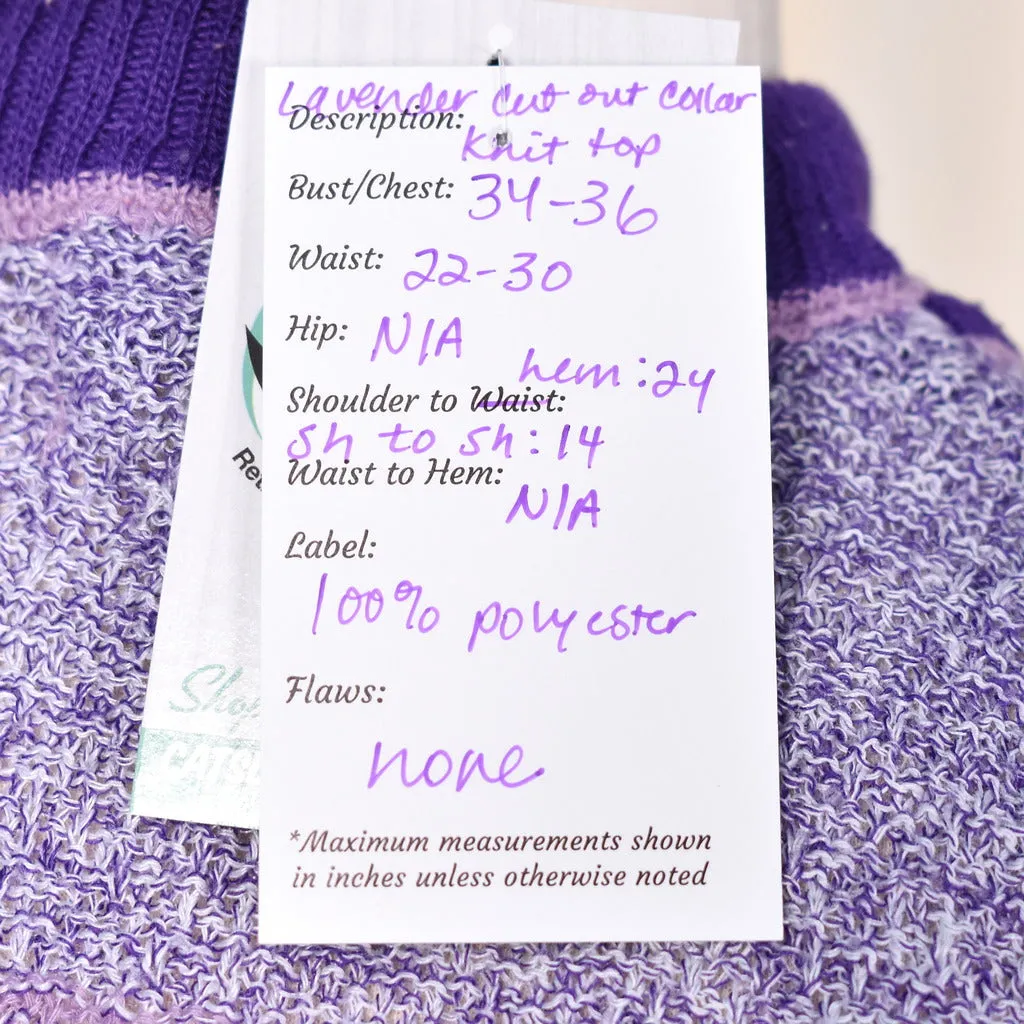 Lavender cut out collar
Description:
knit top
Bust/Chest: 34-36
Waist: 22-30
Hip: N/A
hem: 24
Shoulder to Waist:
sh to sh: 14
Waist to Hem:
N/A
Label:
100% polyester
Flaws:
none
*Maximum measurements shown
in inches unless otherwise noted